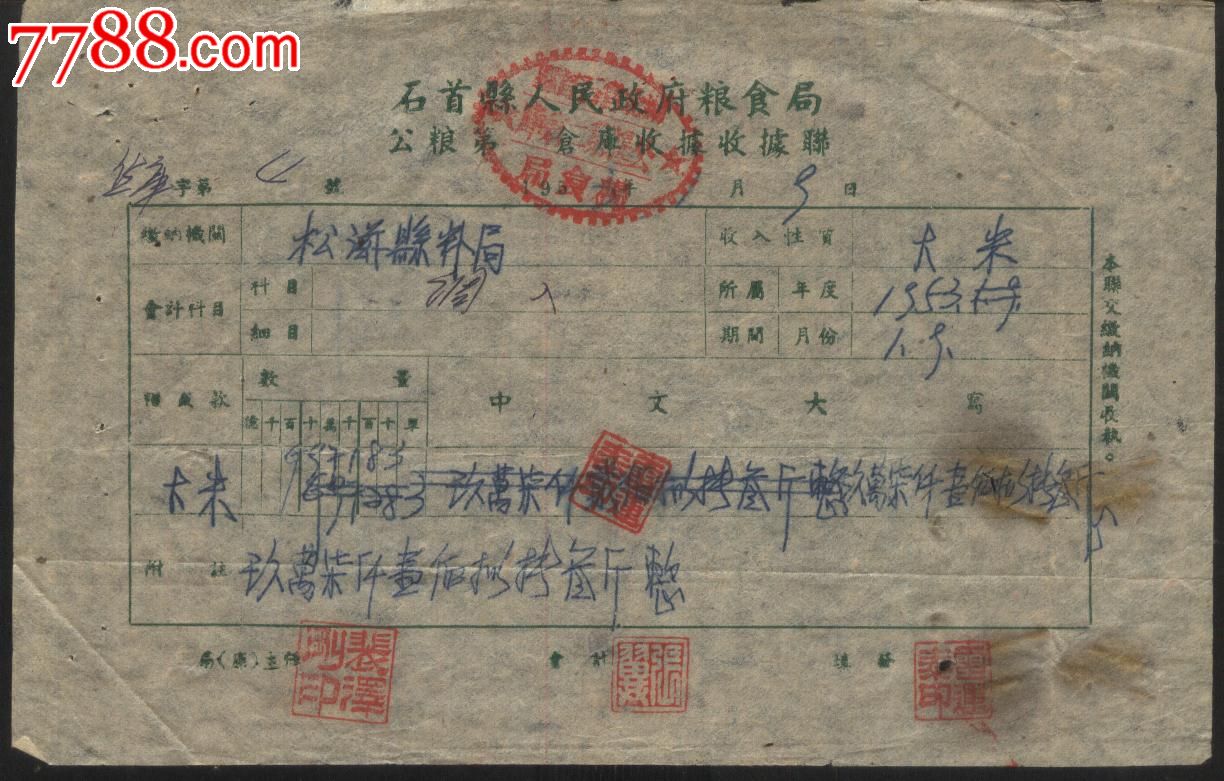 7788.com
石首縣人民政府粮食局
公粮第 倉庫收據收據聯
字第 號 195 年 月 9 日
粮食局
繳納機關 松滋縣粮局 收入性質 大米
會計科目 科目 調入 所屬年度 1953
細目 期間月份 1.9.
數量 中文大寫
億千百十萬千百十單
大米 玖萬柒仟 佰捌拾叁斤整 玖萬柒仟壹佰捌拾叁斤
附註 玖萬柒仟壹佰捌拾叁斤整
局(庫)主任 裴澤剛印 會計 填發
本聯交繳納機關收執。